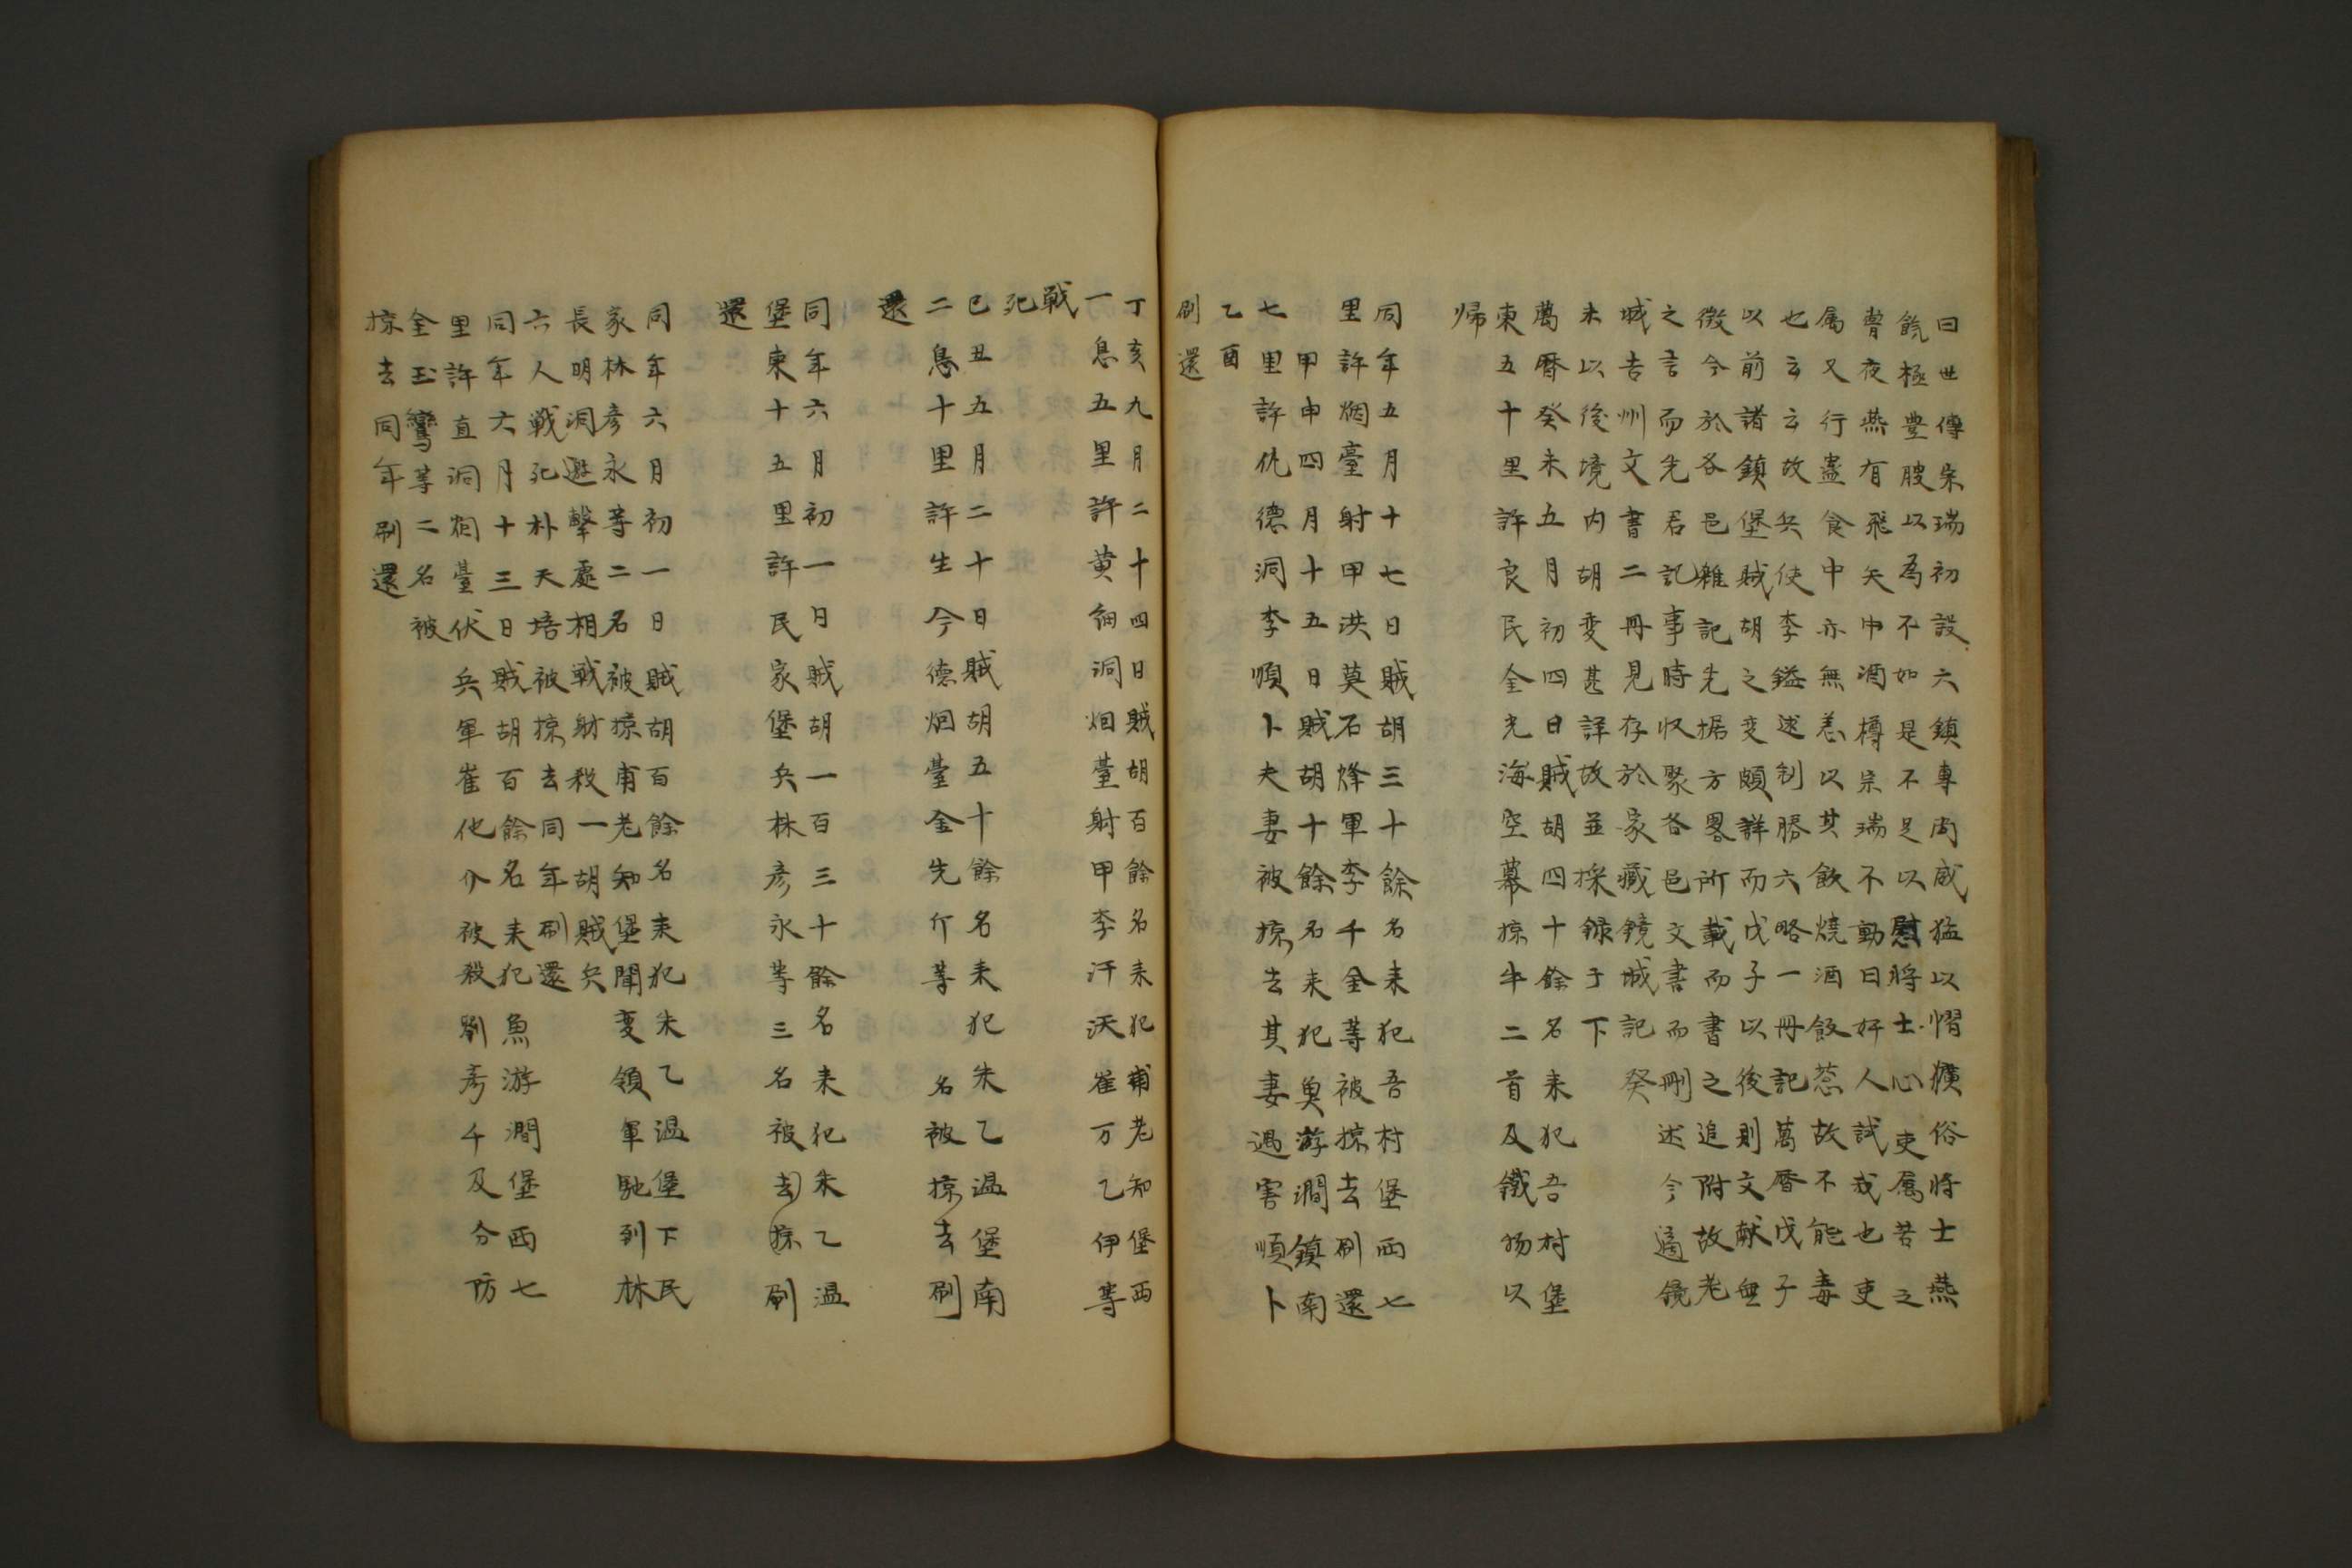 曰世傳朱瑞初設六鎮專尚威猛以慴獷俗將士燕
飲極豊腴以為不如是不足以慰將士心吏属苦之
嘗夜燕有飛矢中酒樽宗瑞不動曰好人試我也吏
属又行盞食中亦無恙以其飲燒酒飯葱故不能毒
也云云故兵使李鎰逑制勝六略一冊記萬曆戊子
以前諸鎮堡賊胡之変頗詳而戊子以後則文献無
徴今於各邑雜記先据方畧所載而書之追附故老
之言而先君記事時収聚各邑文書而刪述今適鏡
城吉州文書二冊見存於家藏鏡城記癸
未以後境内胡変甚詳故並採録于下
萬曆癸未五月初四日賊胡四十餘名来犯吾村堡
東五十里許良民全光海空幕掠牛二首及鐵物以
帰
同年五月十七日賊胡三十餘名来犯吾村堡西七
里許烟臺射甲洪莫石烽軍李千金等被掠去刷還
甲申四月十五日賊胡十餘名来犯魚游澗鎮南
七里許仇德洞李順卜夫妻被掠去其妻遇害順卜
乙酉
刷還
丁亥九月二十四日賊胡百餘名来犯甫老知堡西
一息五里許黄細洞烟臺射甲李汗沃崔万乙伊等
戦
死
巳丑五月二十日賊胡五十餘名来犯朱乙温堡南
二息十里許生今德烟臺金先介等名被掠去刷
還
同年六月初一日賊胡一百三十餘名来犯朱乙温
堡東十五里許民家堡兵林彦永等三名被去掠刷
還
同年六月初一日賊胡百餘名来犯朱乙温堡下民
家林彦永等二名被掠甫老知堡聞変領軍馳到林
長明洞邀擊處相戦射殺一胡賊兵
六人戦死朴天培被掠去同年刷還
同年六月十三日賊胡百餘名来犯魚游澗堡西七
里許直洞烟臺伏兵軍崔他介被殺劉彦千及分防
全玉鸞等二名被
掠去同年刷還